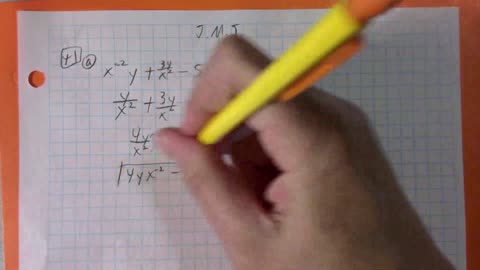 J.M.J.
41 a x⁻² y + 3y/x² - 5
y/x² + 3y/x²
4y/x²
4yx⁻² -